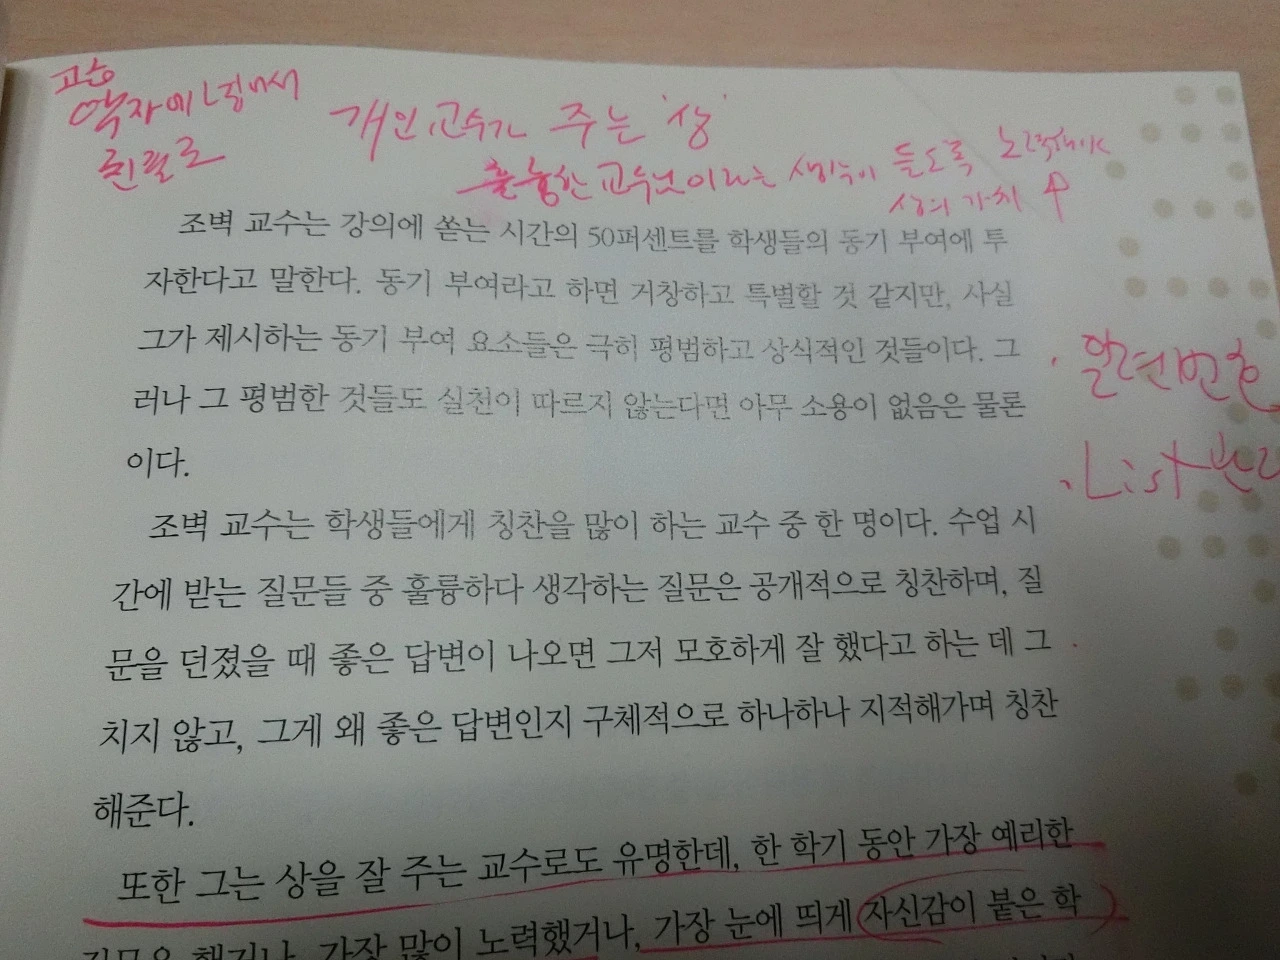 개인 교수가 주는 '상'
훌륭한 교수님이라는 생각이 들도록 노력해야
상의 가치 ↑
조벽 교수는 강의에 쏟는 시간의 50퍼센트를 학생들의 동기 부여에 투
자한다고 말한다. 동기 부여라고 하면 거창하고 특별할 것 같지만, 사실
그가 제시하는 동기 부여 요소들은 극히 평범하고 상식적인 것들이다. 그
러나 그 평범한 것들도 실천이 따르지 않는다면 아무 소용이 없음은 물론
이다.
조벽 교수는 학생들에게 칭찬을 많이 하는 교수 중 한 명이다. 수업 시
간에 받는 질문들 중 훌륭하다 생각하는 질문은 공개적으로 칭찬하며, 질
문을 던졌을 때 좋은 답변이 나오면 그저 모호하게 잘 했다고 하는 데 그
치지 않고, 그게 왜 좋은 답변인지 구체적으로 하나하나 지적해가며 칭찬
해준다.
또한 그는 상을 잘 주는 교수로도 유명한데, 한 학기 동안 가장 예리한
질문을 했거나, 가장 많이 노력했거나, 가장 눈에 띄게 자신감이 붙은 학
· 일련번호
· List